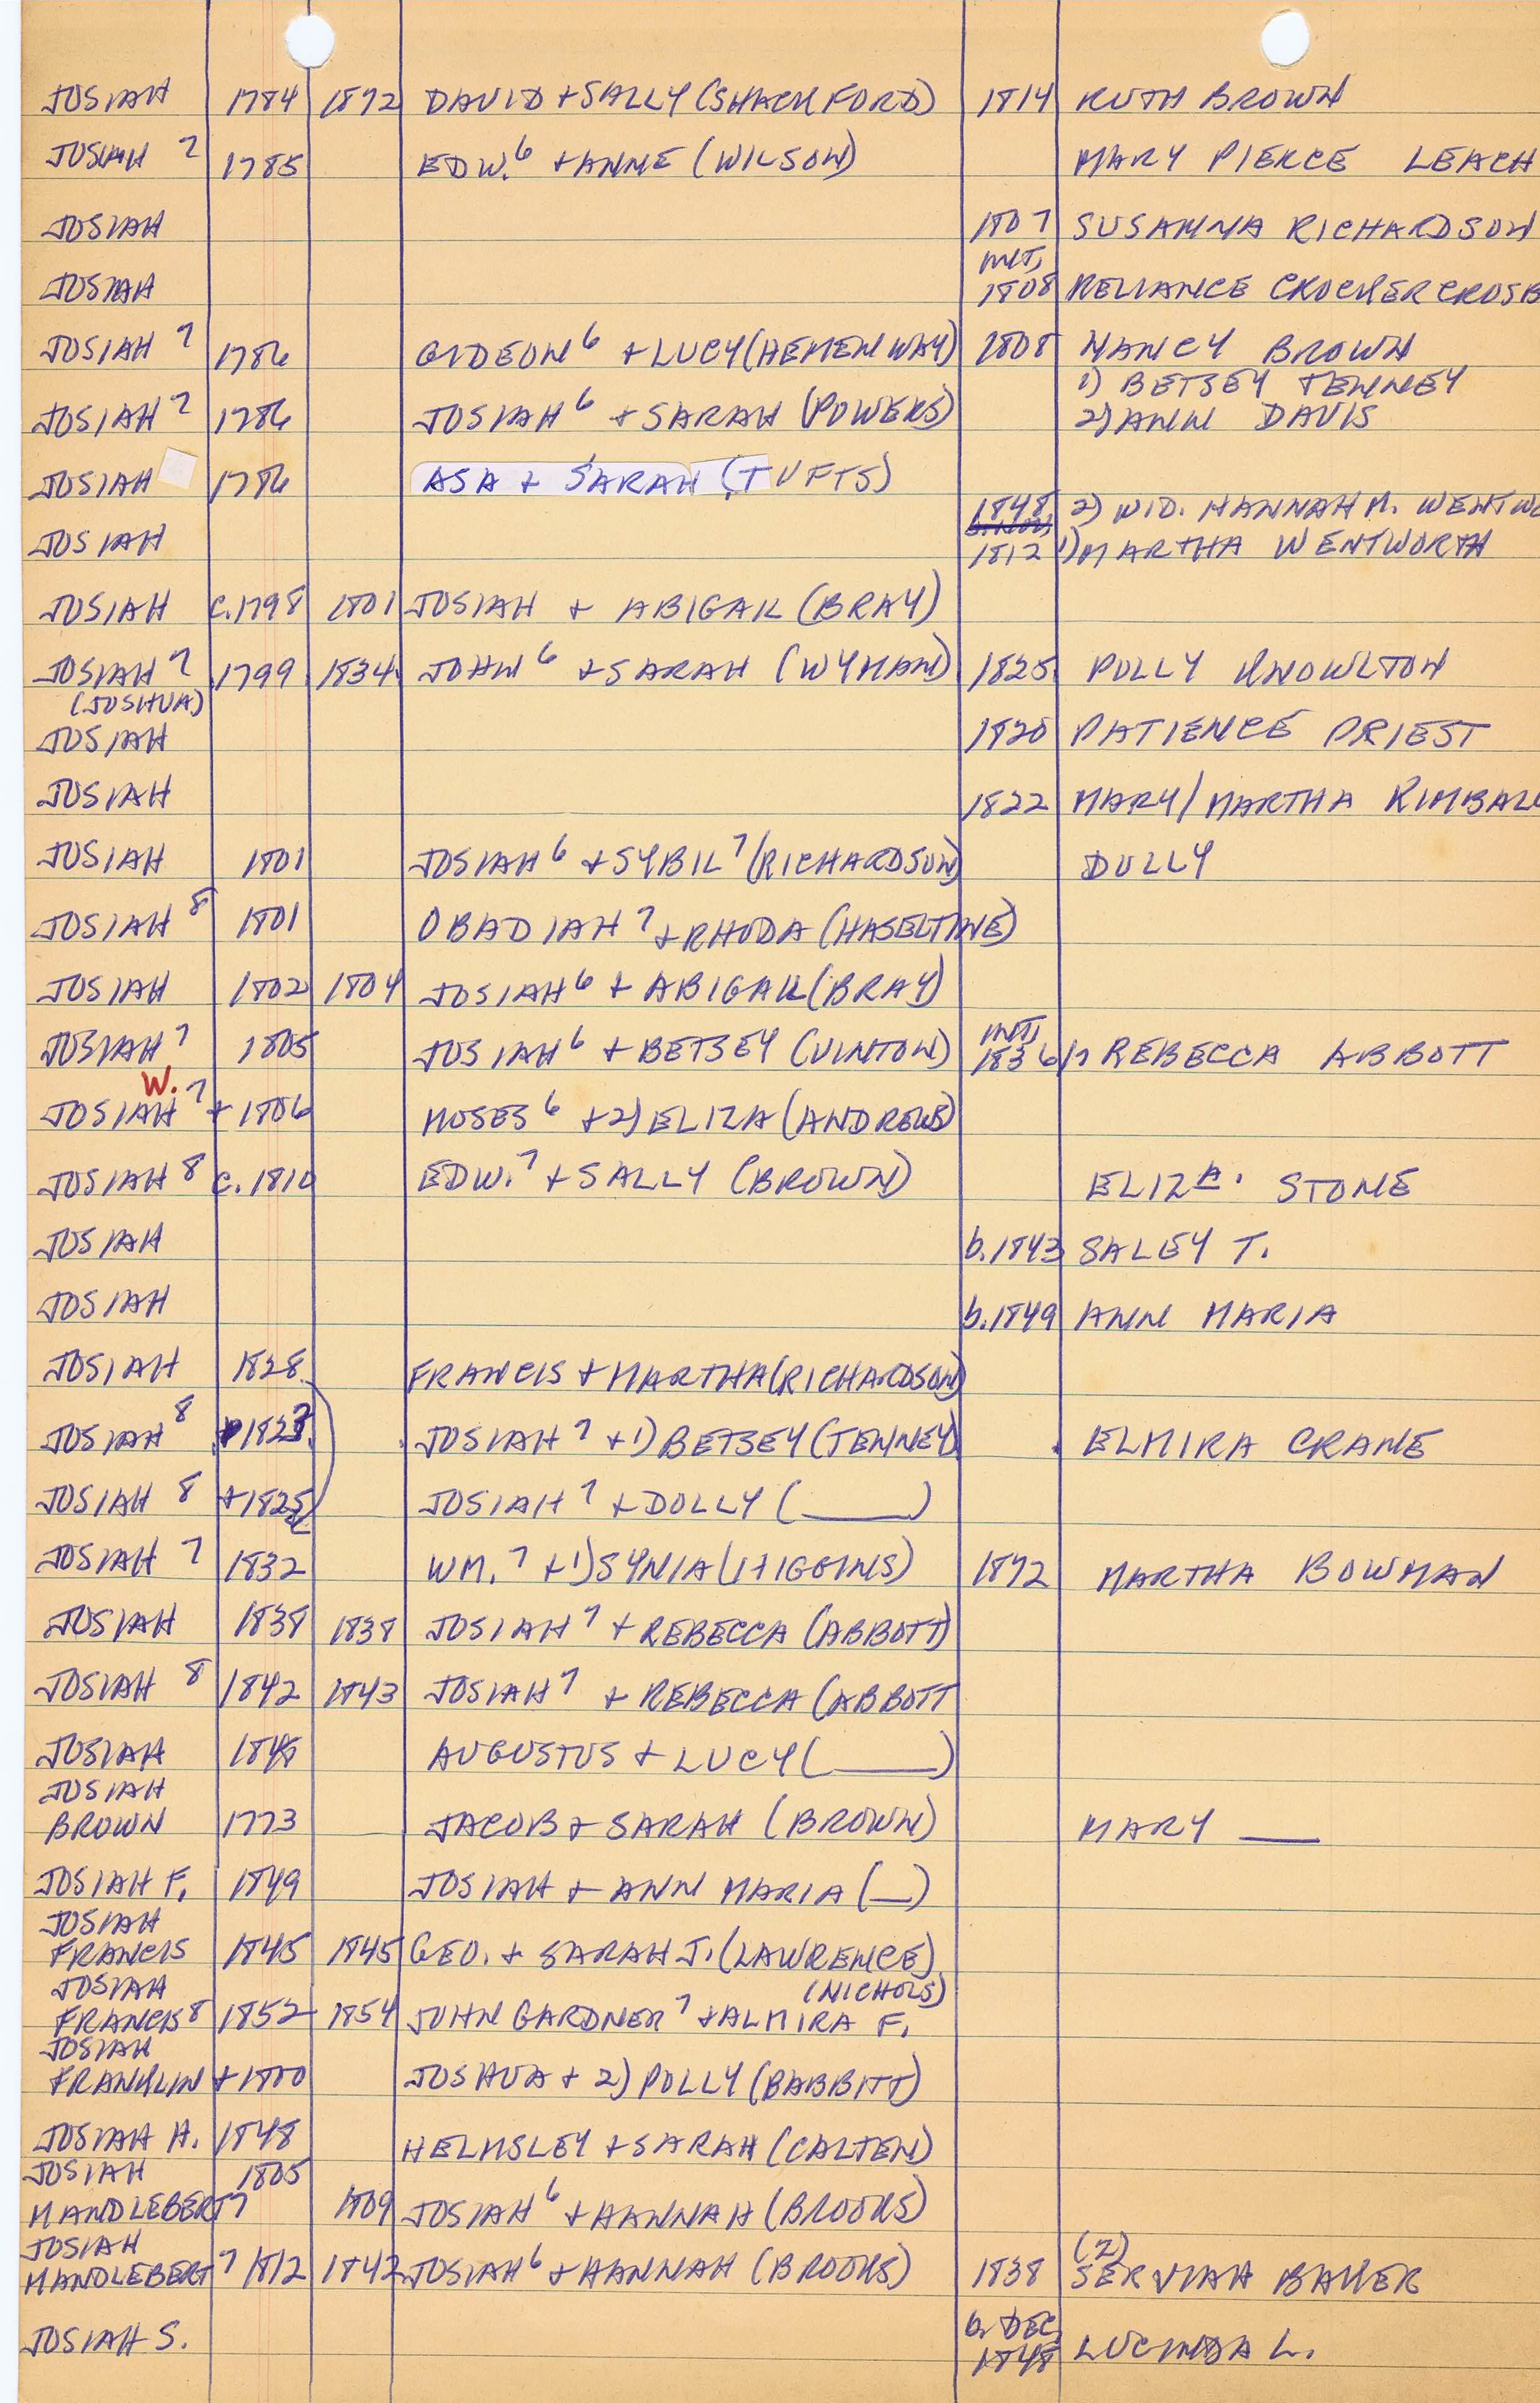 JOSIAH 1784 1872 DAVID + SALLY (SHACKFORD) 1814 RUTH BROWN
JOSIAH 7 1785 EDW.6 + ANNE (WILSON) MARY PIERCE LEACH
JOSIAH 1807 SUSANNA RICHARDSON
INT,
JOSIAH 1808 RELIANCE CROCKER CROSB
JOSIAH 7 1786 GIDEON 6 + LUCY (HEMENWAY) 1808 NANCY BROWN
1) BETSEY TENNEY
JOSIAH 7 1786 JOSIAH 6 + SARAH (POWERS) 2) ANN DAVIS
JOSIAH 1786 ASA + SARAH (TUFTS)
1848, 2) WID. HANNAH M. WENTWO
JOSIAH 1812 1) MARTHA WENTWORTH
JOSIAH c.1798 1801 JOSIAH + ABIGAIL (BRAY)
JOSIAH 7 1799 1834 JOHN 6 + SARAH (WYMAN) 1825 POLLY KNOWLTON
(JOSHUA)
JOSIAH 1820 PATIENCE PRIEST
JOSIAH 1822 MARY/MARTHA KIMBALL
JOSIAH 1801 JOSIAH 6 + SYBIL 7 (RICHARDSON) DOLLY
JOSIAH 8 1801 OBADIAH 7 + RHODA (HASELTINE)
JOSIAH 1802 1804 JOSIAH 6 + ABIGAIL (BRAY)
INT,
JOSIAH 7 1805 JOSIAH 6 + BETSEY (VINTON) 1836 1) REBECCA ABBOTT
W.
JOSIAH 7 + 1806 MOSES 6 + 2) ELIZA (ANDREWS)
JOSIAH 8 c. 1810 EDW.7 + SALLY (BROWN) ELIZA. STONE
JOSIAH b.1843 SALEY T.
JOSIAH b.1849 ANN MARIA
JOSIAH 1828 FRANCIS + MARTHA (RICHARDSON)
JOSIAH 8 JOSIAH 7 + 1) BETSEY (TENNEY) ELMIRA CRANE
JOSIAH 8 +1825 JOSIAH 7 + DOLLY (____)
JOSIAH 7 1832 WM.7 + 1) SYNIA (HIGGINS) 1872 MARTHA BOWMAN
JOSIAH 1838 1838 JOSIAH 7 + REBECCA (ABBOTT)
JOSIAH 8 1842 1843 JOSIAH 7 + REBECCA (ABBOTT
JOSIAH AUGUSTUS + LUCY (____)
JOSIAH
BROWN 1773 JACOB + SARAH (BROWN) MARY ____
JOSIAH F. 1849 JOSIAH + ANN MARIA (__)
JOSIAH
FRANCIS 1845 1845 GEO. + SARAH J. (LAWRENCE)
JOSIAH (NICHOLS)
FRANCIS 8 1852 1854 JOHN GARDNER 7 + ALMIRA F.
JOSIAH
FRANKLIN + 1800 JOSHUA + 2) POLLY (BABBITT)
JOSIAH H. 1848 HELMSLEY + SARAH (CALTEN)
JOSIAH 1805
MANDLEBERT 7 1809 JOSIAH 6 + HANNAH (BROOKS)
JOSIAH (2)
MANDLEBERT 7 1812 1842 JOSIAH 6 + HANNAH (BROOKS) 1838 SERVIAH BAKER
b. DEC,
JOSIAH S. 1848 LUCINDA L.